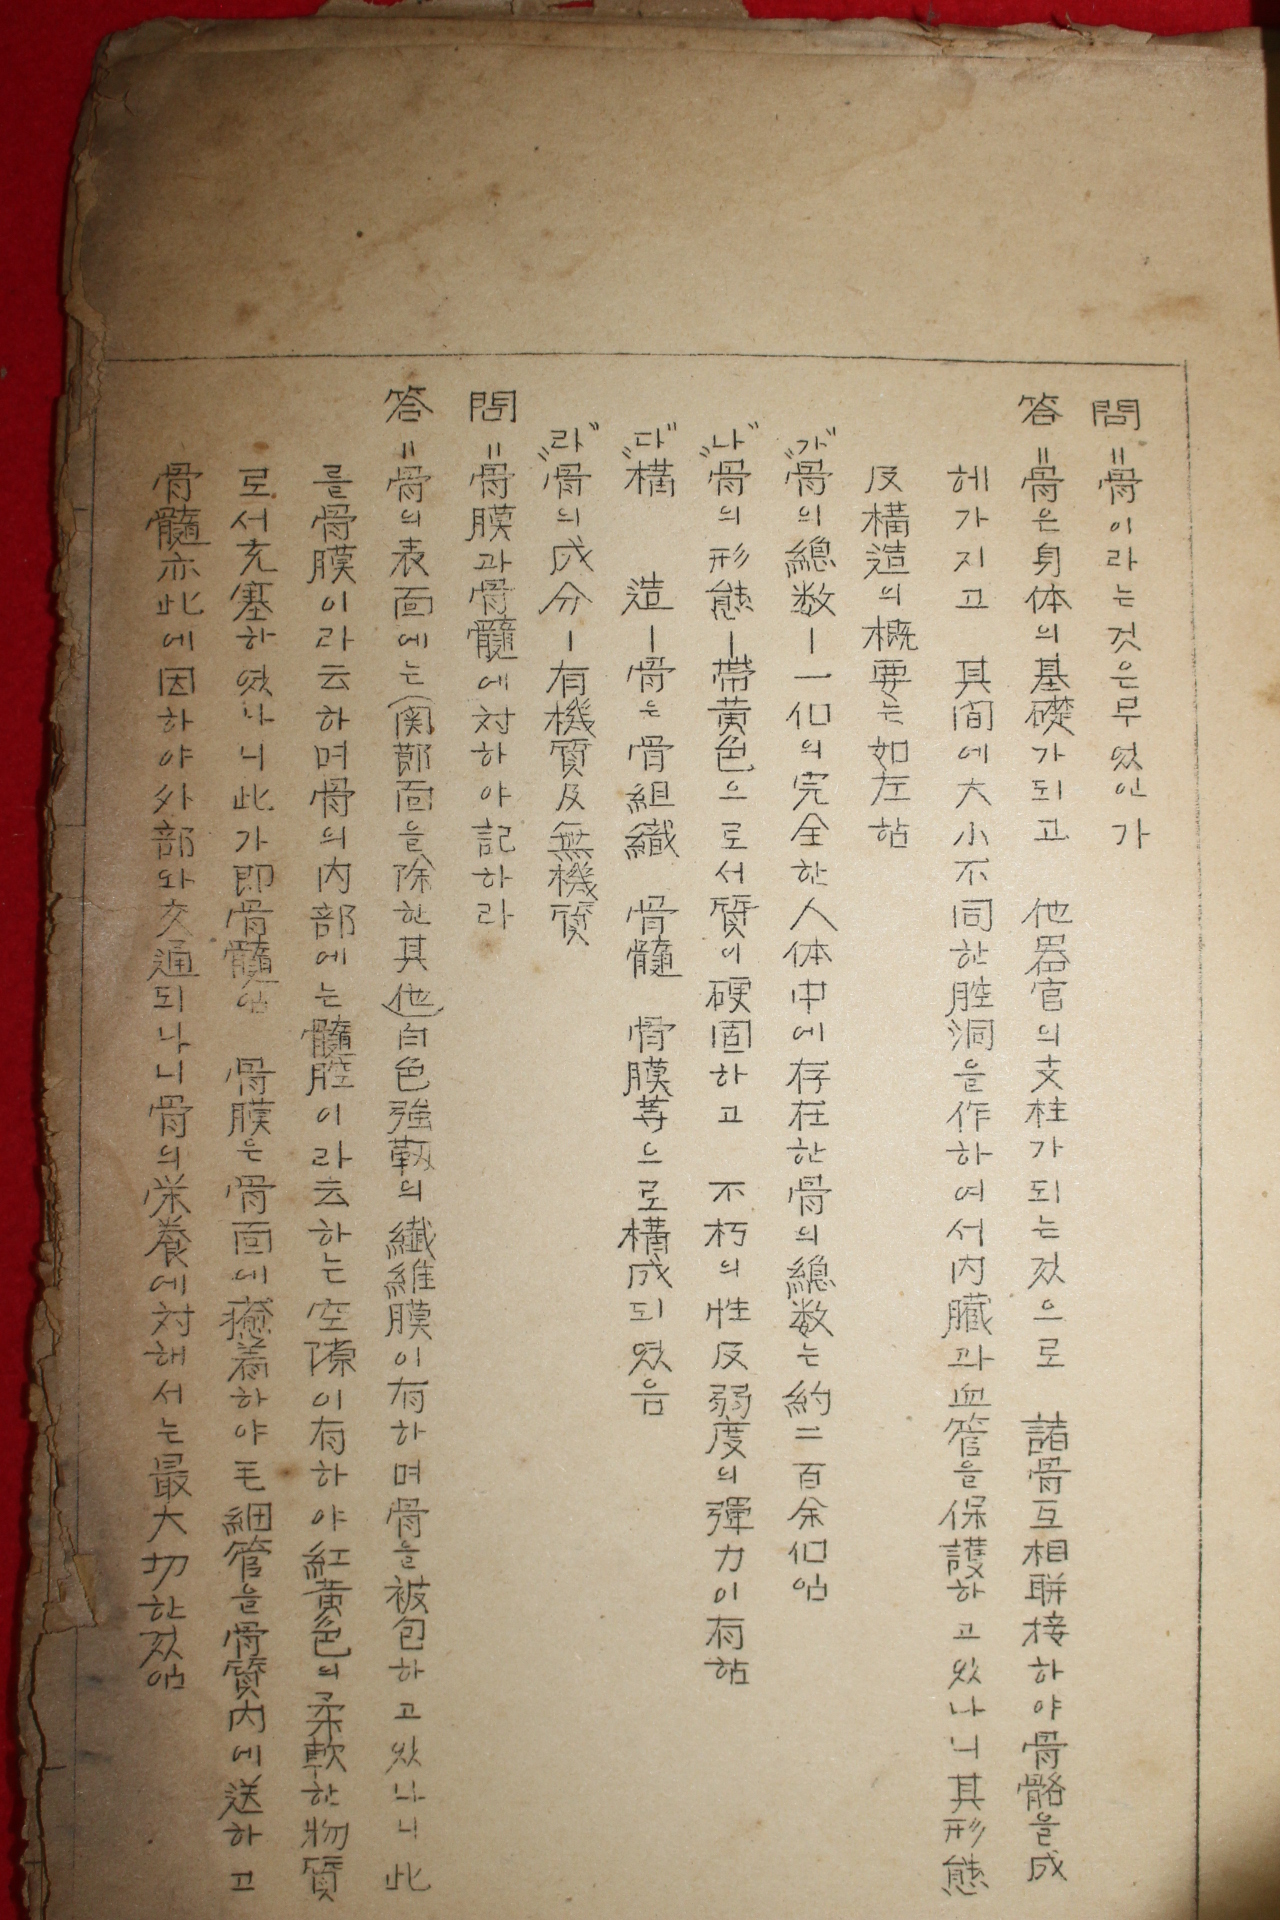 問＝骨이라는것은무엇인가
答＝骨은身体의基礎가되고 他器官의支柱가되는것으로 諸骨互相聯接하야骨骼을成
헤가지고 其間에大小不同한腔洞을作하여서内臓과血管을保護하고있나니其形態
及構造의概要는如左함
"가"骨의總数ー一個의完全한人体中에存在한骨의總数는約二百余個임
"나"骨의形態ー帶黄色으로서質이硬固하고 不朽의性及弱度의彈力이有함
"다"構 造ー骨은骨組織 骨髓 骨膜等으로構成되였음
"라"骨의成分ー有機質及無機質
問＝骨膜과骨髓에対하야記하라
答＝骨의表面에는(関節面을除한其他)白色強靱의纖維膜이有하며骨을被包하고있나니此
를骨膜이라云하며骨의内部에는髓腔이라云하는空隙이有하야紅黄色의柔軟한物質
로서充塞하였나니此가即骨髓임 骨膜은骨面에癒着하야毛細管을骨質内에送하고
骨髓亦此에因하야外部와交通되나니骨의栄養에対해서는最大切한것임